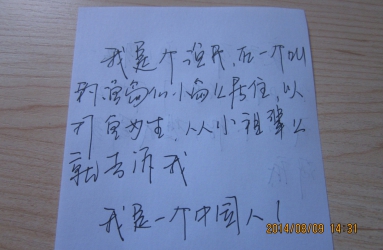 我是一个渔民,在一个叫
钓鱼岛的小岛上居住,以
打鱼为生,从小祖辈们
就告诉我
我是一个中国人!
2014/08/09 14:31